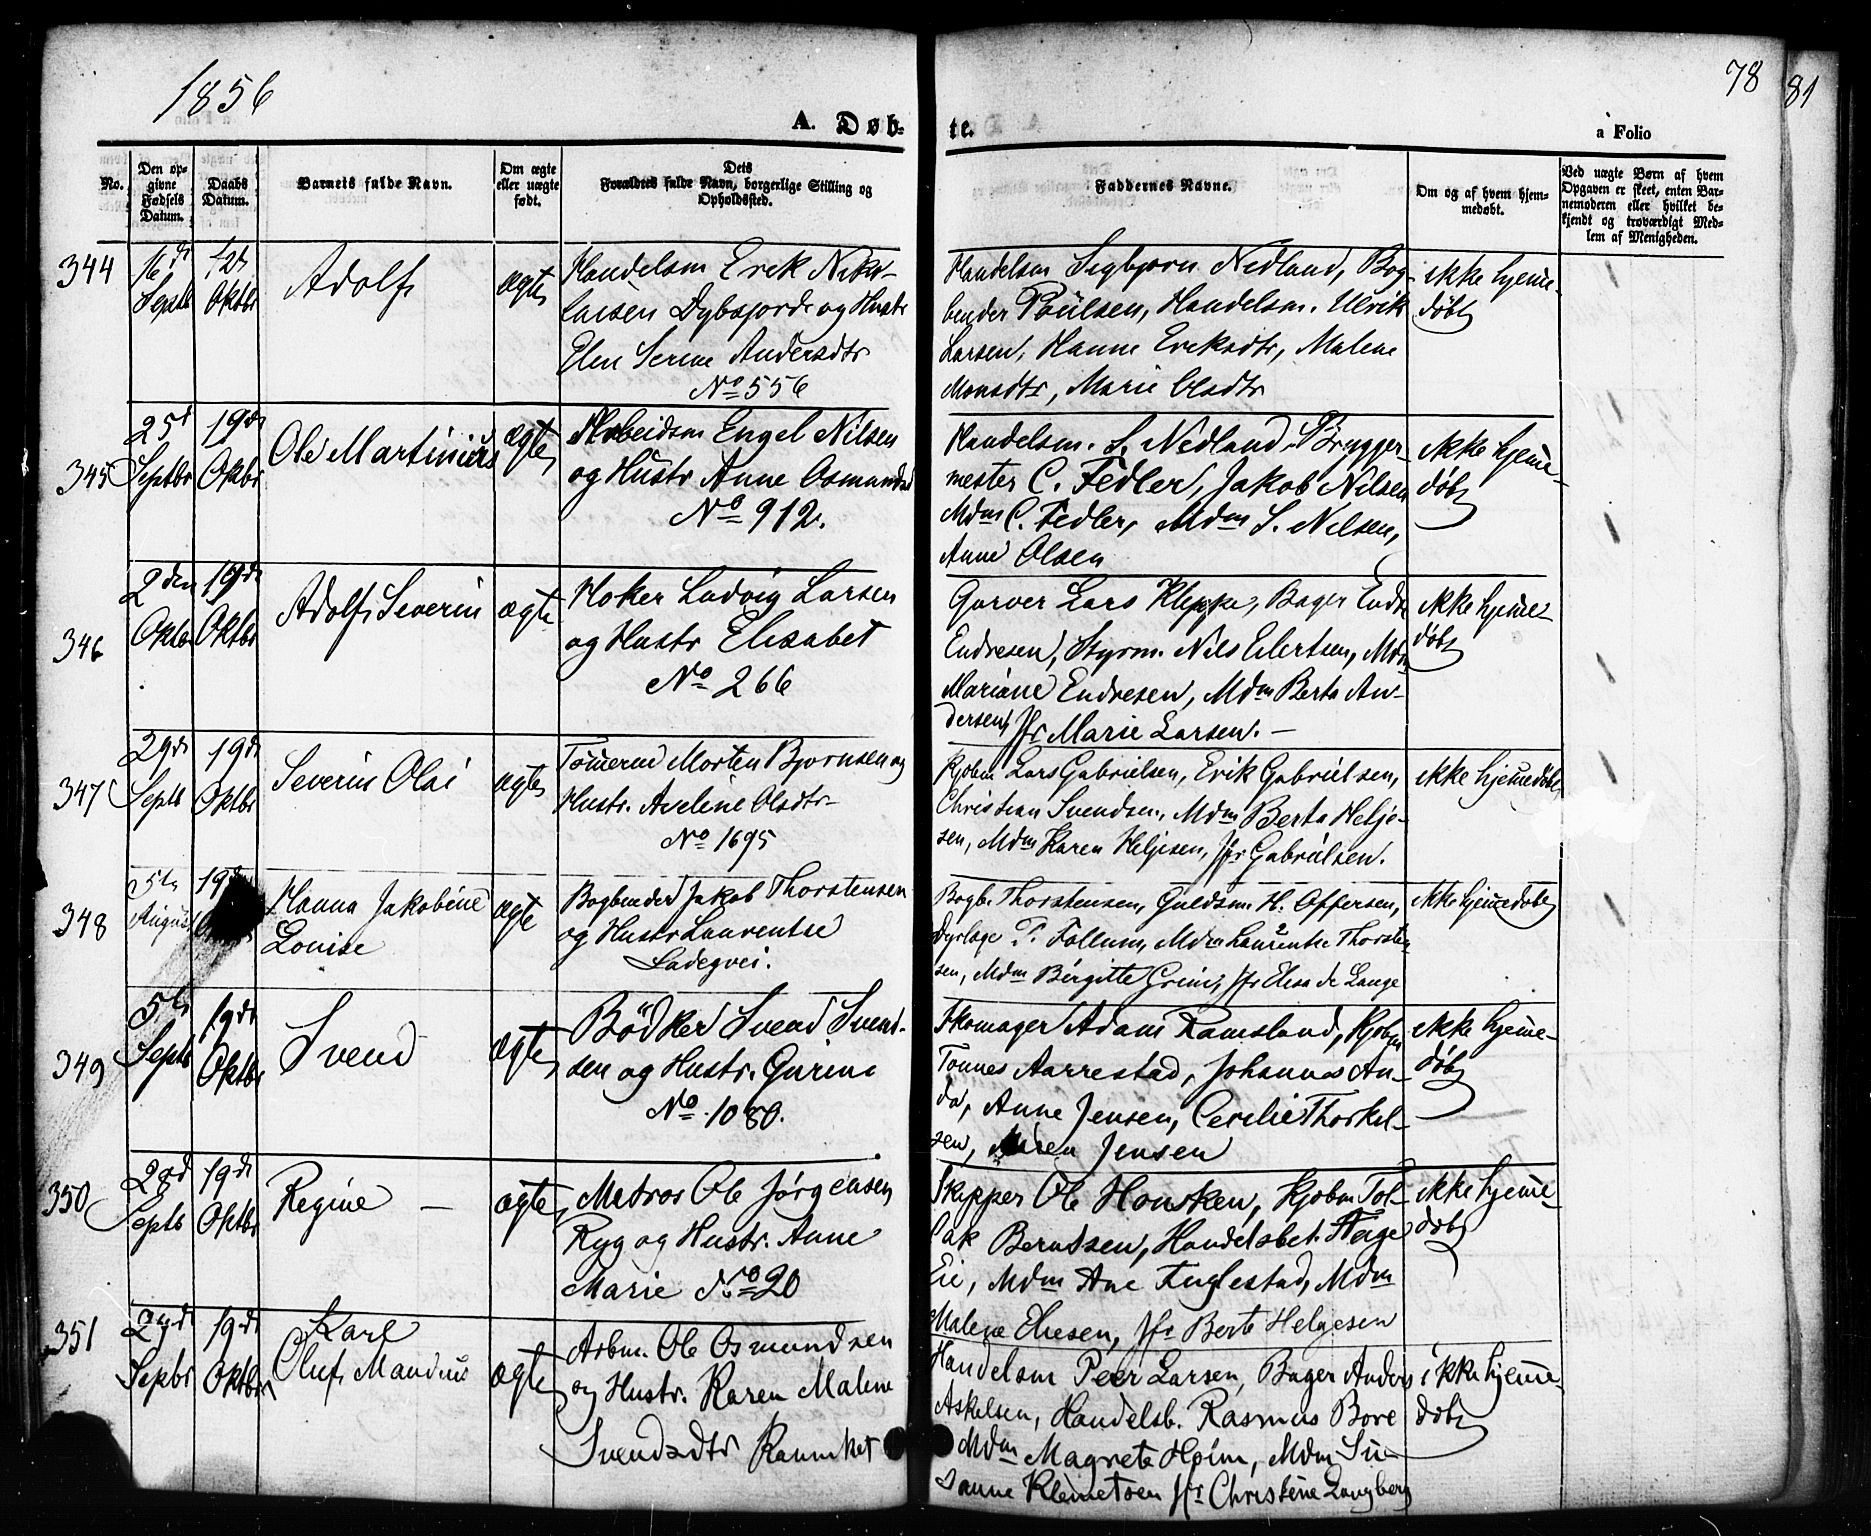 1856
78
81
A. Døb-
te.
a Folio
No.
Den op-
givne
Fødsels
Datum.
Daabs
Datum.
Barnets fulde Navn.
Om ægte
eller uægte
født.
Dets
Forældres fulde Navn, borgerlige Stilling og
Opholdssted.
Faddernes Navne.
Om og af hvem hjem-
medøbt.
Ved uægte Børn af hvem
Opgaven er skeet, enten Bar-
nemoderen eller hvilket be-
kjendt og troværdigt Med-
lem af Menigheden.
344
16de
Septb
12
Oktbr
Adolf
ægte
Handelsm Erik Niku-
laisen Dybsfjord og Hustr
Elen Serine Andersdtr
No 556
Handelsm Sigbjørn Nedland, Bog-
binder Poulsen, Handelsm. Ulrik
Larsen, Hanne Eriksdtr, Malene
Monsdtr, Marie Olsdtr
ikke hjemme-
døbt
345
25d
Septbr
19de
Oktbr
Ole Martinius
ægte
Arbeidsm Engel Nilsen
og Hustr Anne Osmundsd
No 912.
Handelsm. S. Nedland, Brygger-
mester C. Fedler, Jakob Nilsen
Mdm C. Fedler, Mdm S. Nilsen,
Anne Olsen
ikke hjemme-
døbt
346
2den
Oktb
19de
Oktbr
Adolf Severin
ægte
Høker Ludvig Larsen
og Hustr Elisabet
No 266
Garver Lars Kleppe, Bager Endre
Endresen, Styrm. Nils Eilertsen, Mdm
Mariane Endresen, Mdm Berta An-
dersen, Jfr Marie Larsen. —
ikke hjemme-
døbt
347
29de
Septb
19de
Oktbr
Severin Olai
ægte
Tømmermd Morten Bjørnsen og
Hustr. Aveline Olsdtr
No 1695
Kjøbm Lars Gabrielsen, Erik Gabrielsen,
Christian Svendsen, Mdm Berta Helje-
sen, Mdm Karen Heljesen, Jfr Gabrielsen.
ikke hjemmedøbt
348
5te
August
19de
Hanna Jakobine
Louise
ægte
Bogbinder Jakob Thorstensen
og Hustr Laurentse
Ladegvei.
Bogb. Thorstensen, Guldsm H. Offersen,
Dyrlæge T. Follum, Mdm Laurentse Thorsten-
sen, Mdm Birgitte Grim, Jfr Elisa de Lange
ikke hjemmedøbt
349
5te
Septb
19de
Oktbr
Svend
ægte
Bødker Svend Svend-
sen og Hustr. Gurine
No. 1080.
Skomager Adam Ramsland, Kjøbm
Tønnes Aarrestad, Johannes An-
da, Anne Jensen, Cecilie Thorkel-
sen, Maren Jensen
ikke hjemme-
døbt
350
28d
Septb
19de
Oktbr
Regine —
ægte
Matros Ole Jørgensen
Ryg og Hustr. Anne
Marie No 20
Skipper Ole Housken, Kjøbm Tol-
lak Berntsen, Handelsbet. Aage
Eie, Mdm Ane Fuglestad, Mdm
Malene Eliesen, Jfr Berte Helgesen
ikke hjemme-
døbt
351
27de
Septbr
19de
Oktbr
Karl
Oluf Mandius
ægte
Arbm. Ole Osmundsen
og Hustr. Karen Malene
Svendsdtr
Handelsm Peer Larsen, Bager Anders
Askelsen, Handelsb. Rasmus Bore
Mdm Magrete Holm, Mdm Su-
sanne Klemetsen Jfr Christine Langberg
ikke hjemme-
døbt